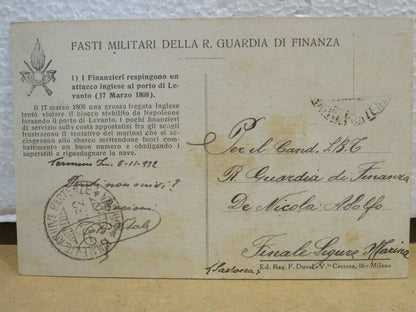 FASTI MILITARI DELLA R. GUARDIA DI FINANZA
1) I Finanzieri respingono un
attacco inglese al porto di Le-
vanto (17 Marzo 1808).
Il 17 marzo 1808 una grossa fregata Inglese
tentò violare il blocco stabilito da Napoleone
forzando il porto di Levanto. I pochi finanzieri
di servizio sulla costa appostatisi fra gli scogli
frustrarono il tentativo dei marinai che si ac-
cingevano allo sbarco mettendone fuori com-
battimento un buon numero e obbligando i
superstiti a riguadagnare la nave.
8-11-932
non scrivi?
Per il Cand. L.B.T
R. Guardia di Finanza
De Nicola Adolfo
Finale Ligure Marina
(Savona)
Ed. Rag. F. Duval, V. Cestena, 16 - Milano